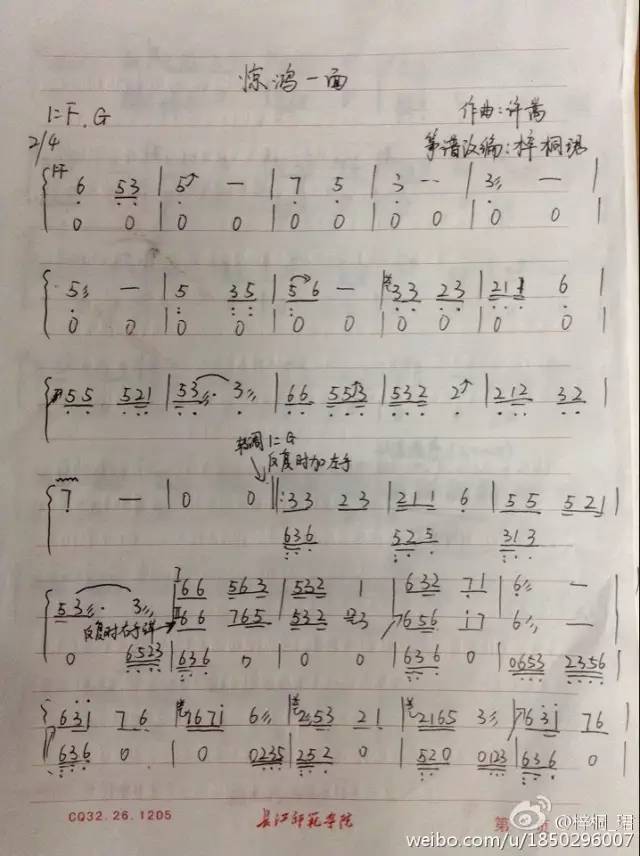 惊鸿一面
1=F.G
作曲:许嵩
2/4
筝谱改编:梓桐珺
6 53 | 5 — | 7 5 | 3 -- | 3 — |
0 0 | 0 0 | 0 0 | 0 0 | 0 0 |
5 — | 5 35 | 56 — | 33 23 | 211 6 |
0 0 | 0 0 | 0 0 | 0 0 | 0 0 |
55 521 | 53. 3 | 66 553 | 532 2 | 212 32 |
转调 1=G
反复时加左手
7 — | 0 0 ‖: 33 23 | 211 6 | 55 521 |
636 525 313
53. 3 | I 66 563 | 532 1 | 632 71 | 6 — |
反复时右手弹→ II 66 765 | 532 3 | 7656 i7 | 6 — |
0 6523 | 636 0 | 0 0 | 636 0 | 0653 2356 |
63i 76 | 767i 6 | 253 21 | 2165 3 | 763i 76
636 0 | 0 0235 | 252 0 | 520 0123 | 636 0
CQ32.26.1205
长江师范学院
第
@梓桐_珺
weibo.com/u/1850296007